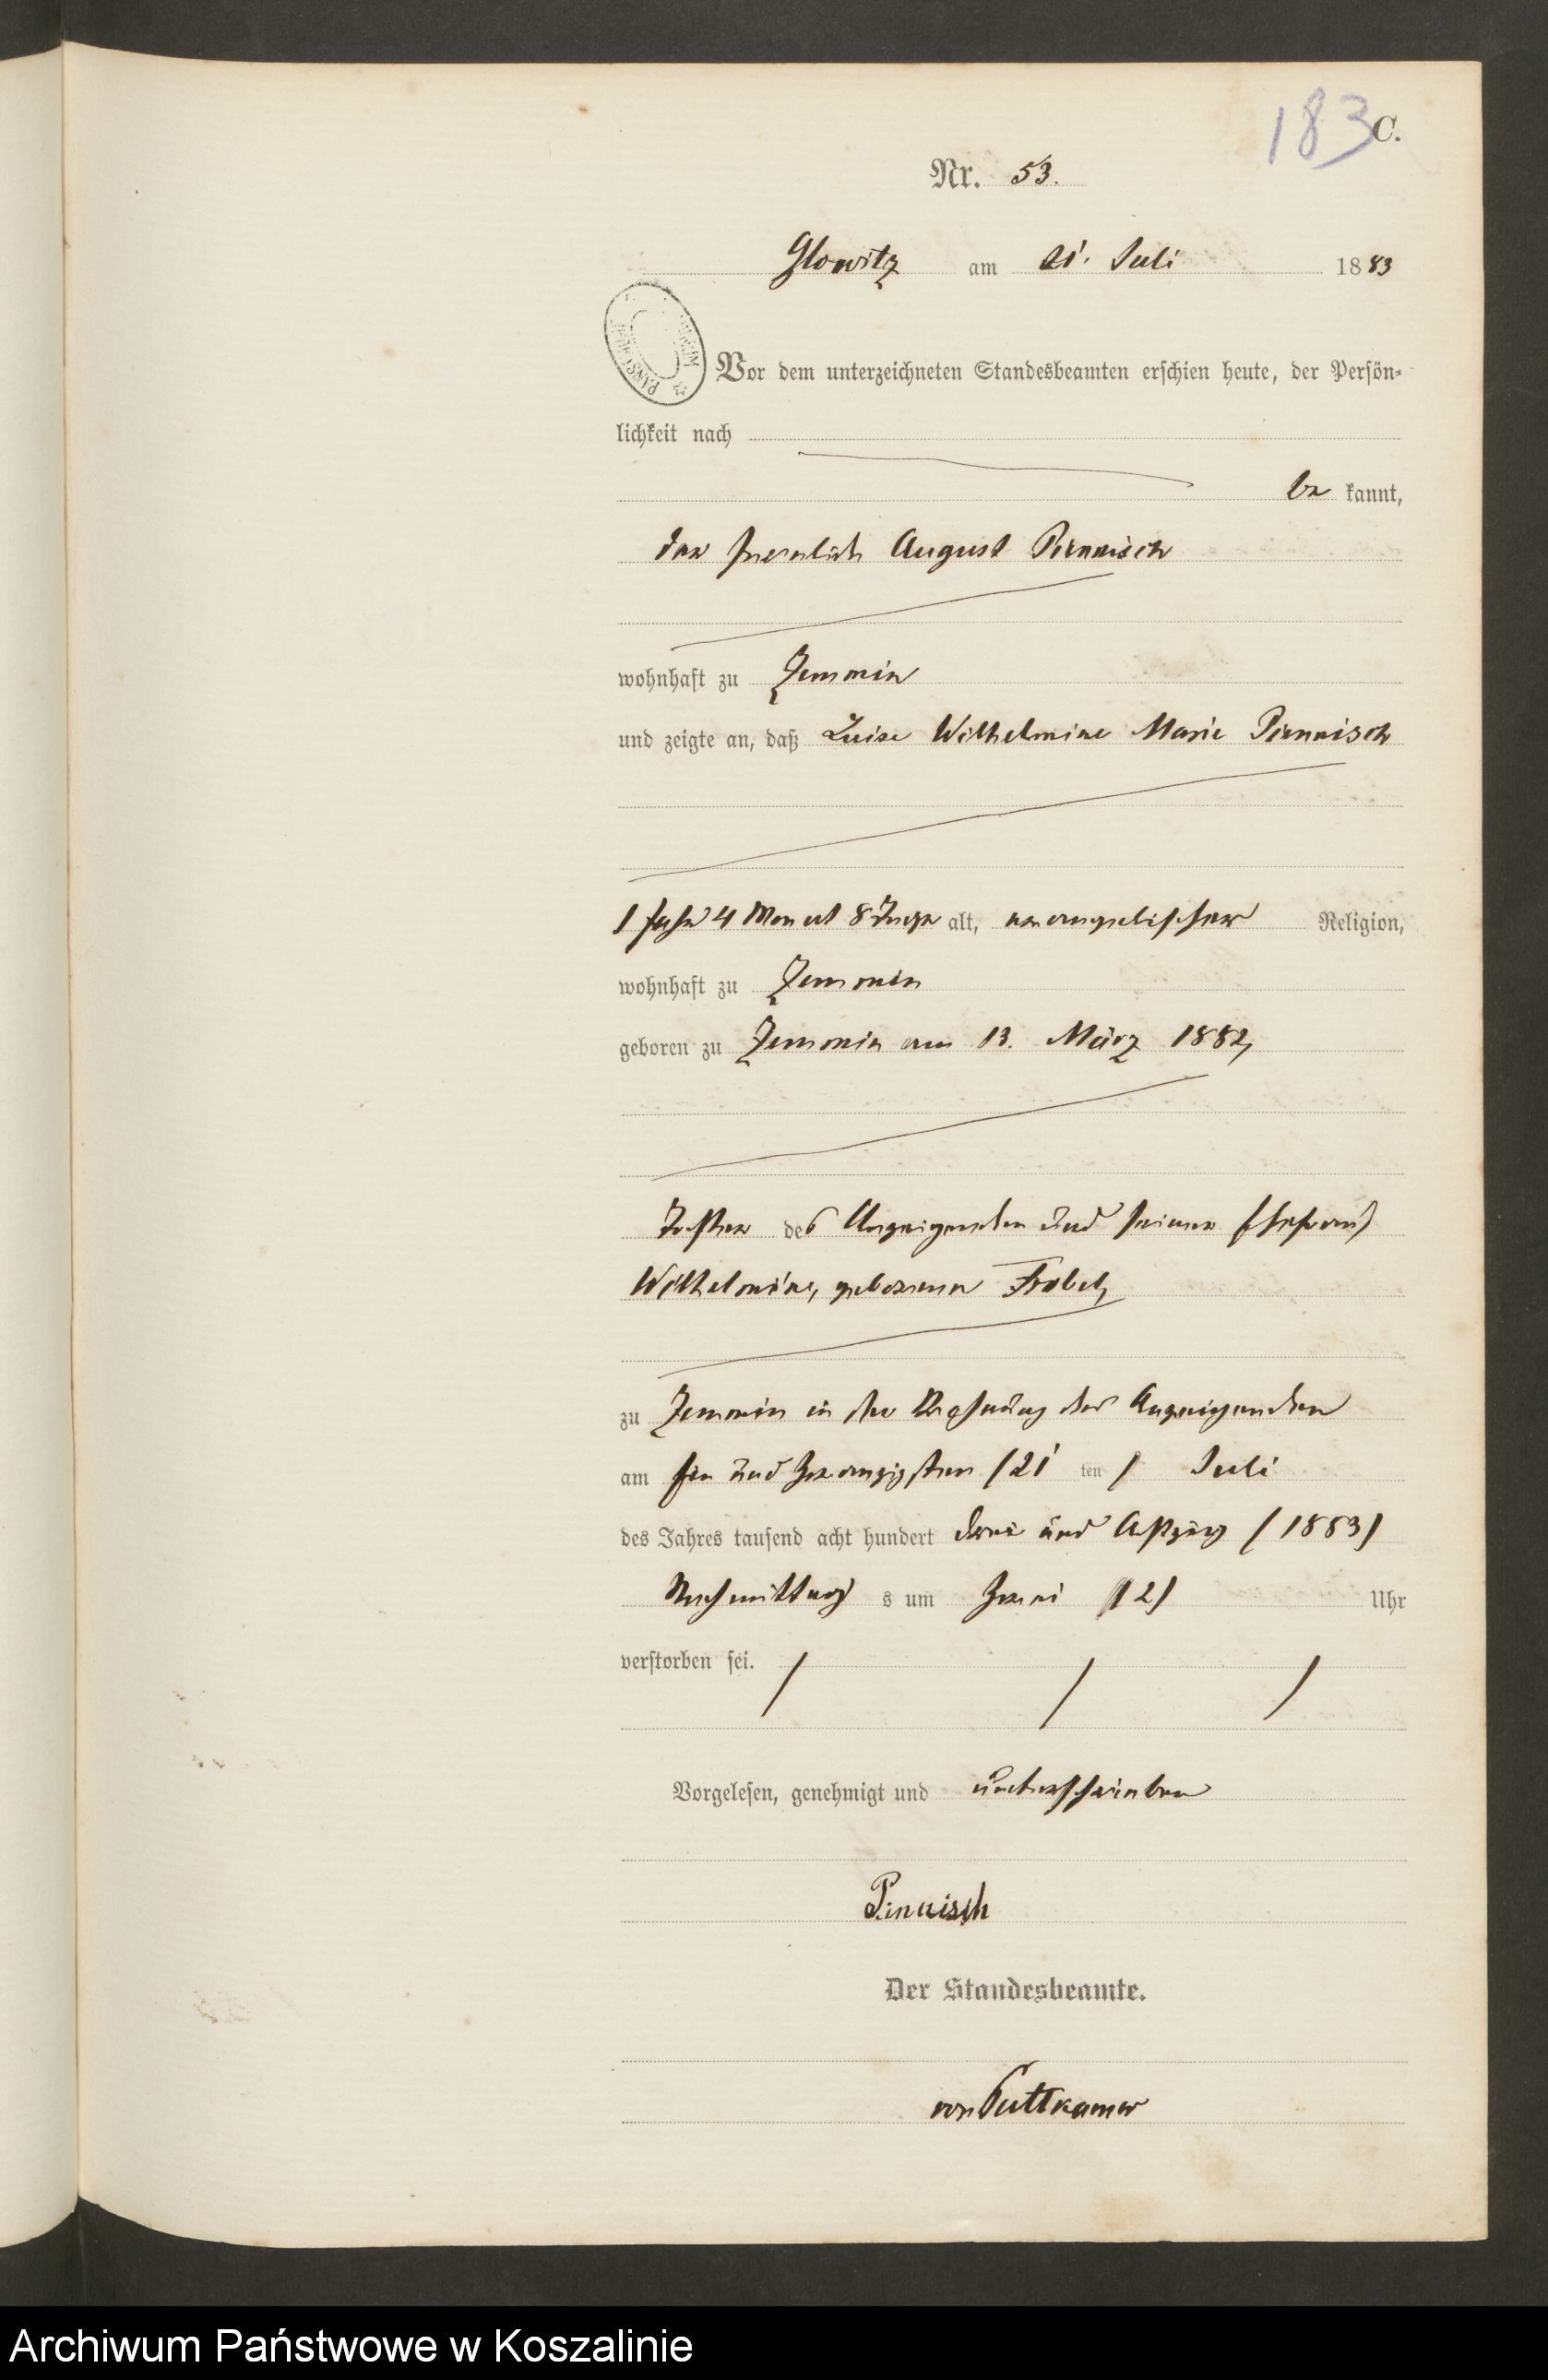 183 C.
Nr. 53.
Glowitz am 21. Juli 1883
Vor dem unterzeichneten Standesbeamten erschien heute, der Persön-
lichkeit nach
be kannt,
der August Piennisch
wohnhaft zu Zemmin
und zeigte an, daß Luise Wilhelmine Marie Piennisch
1 Jahr 4 Monat 8 Tage alt, evangelischer Religion,
wohnhaft zu Zemmin
geboren zu Zemmin am 13. März 1882,
Tochter des Anzeigenden und seiner Ehefrau
Wilhelmine, geborenen Frobel,
zu Zemmin in der Behausung des Anzeigenden
am ein und zwanzigsten /21 ten / Juli
des Jahres tausend acht hundert drei und Achtzig /1883/
Nachmittag s um zwei /2/ Uhr
verstorben sei.
Vorgelesen, genehmigt und unterschrieben
Pinnisch
Der Standesbeamte.
von Puttkamer
Archiwum Państwowe w Koszalinie